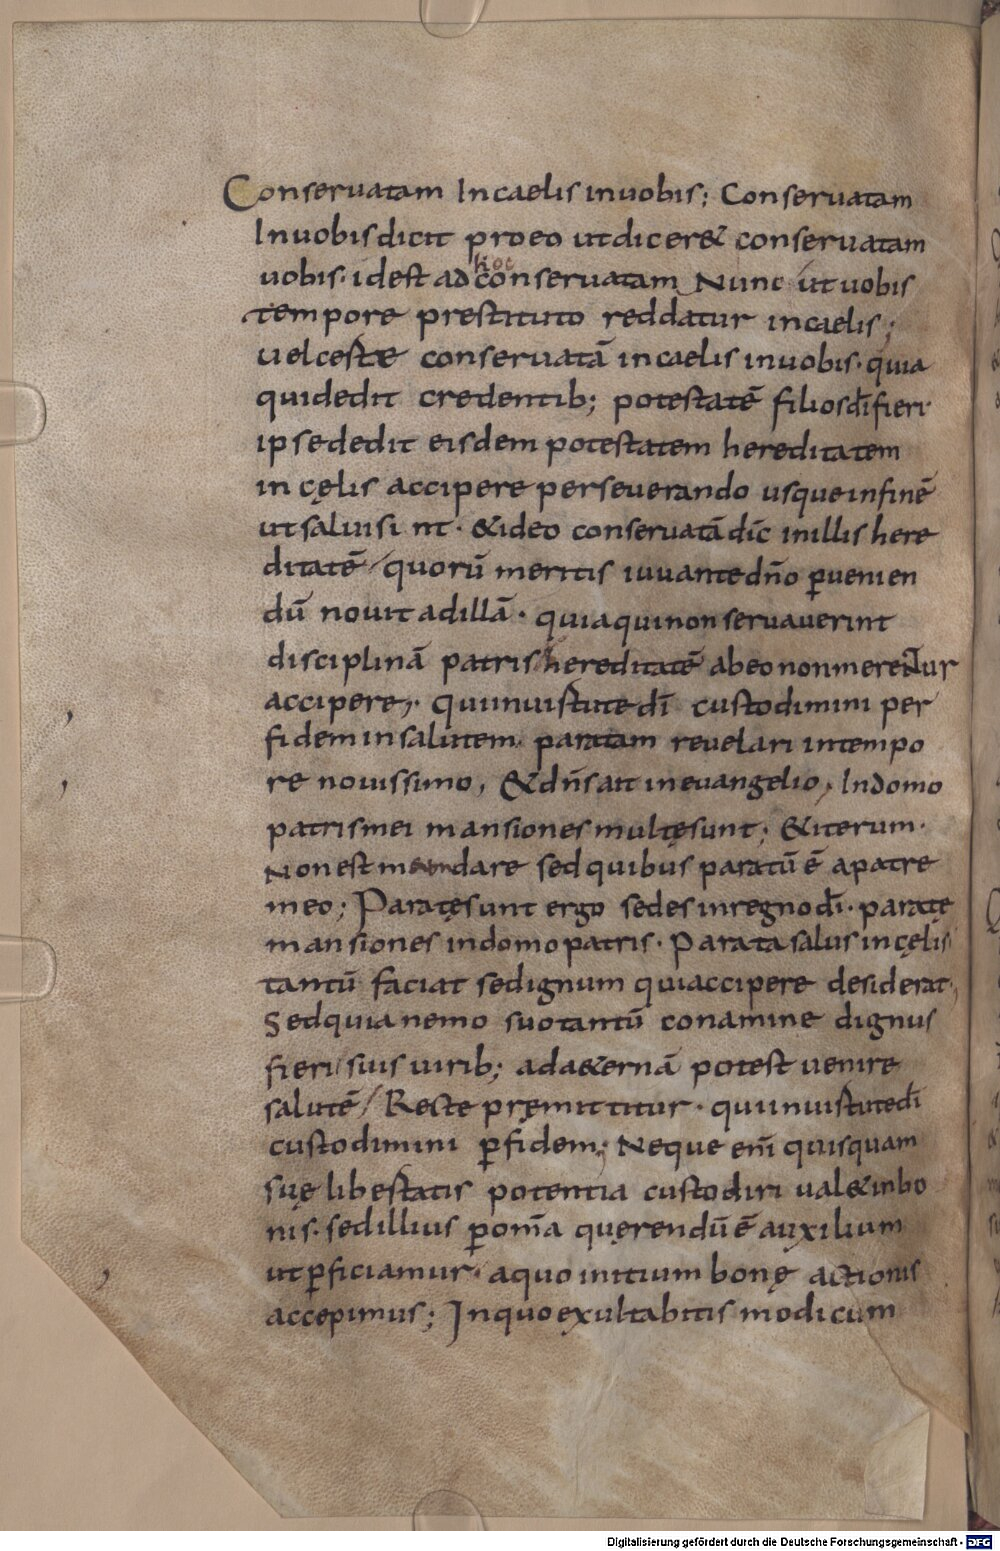 Conseruatam In caelis in uobis; Conseruatam
In uobis dicit pro eo ut dicer& conseruatam
hoc
uobis· id est ad conseruatam Nunc ut uobis
tempore prestituto reddatur in caelis;
uel certe conseruatā in caelis in uobis· quia
qui dedit credentib; potestatē filios dī fieri·
ipse dedit eisdem potestatem hereditatem
in cęlis accipere perseuerando usque in finē
ut salui sint· & ideo conseruatā dīc in illis here
ditatē / quorū meritis iuuante dn̄o ꝑuenien
dū nouit ad illā· quia qui non seruauerint
disciplinā patris / hereditatē ab eo non merentur
accipere,· qui in uirtute dī custodimini per
fidem in salutem· paratam reuelari in tempo
re nouissimo, & dn̄s ait in euangelio, In domo
patris mei mansiones multę sunt; & iterum·
Non est meum dare sed quibus paratū ē a patre
meo; Paratę sunt ergo sedes in regno dī· paratę
mansiones in domo patris· Parata salus in cęlis
tantū faciat se dignum qui accipere desiderat,
Sed quia nemo suo tantū conamine dignus
fieri / suis uirib; ad a&ernā potest uenire
salutē / Recte pręmittitur· qui in uirtute dī
custodimini ꝑ fidem; Neque enī quisquam
suę libertatis potentia custodiri ual& in bo
nis· sed illius ꝑ om̄a quęrendū ē auxilium
ut ꝑficiamur· a quo initium bonę actionis
accepimus; In quo exultabitis modicum
Digitalisierung gefördert durch die Deutsche Forschungsgemeinschaft - DFG